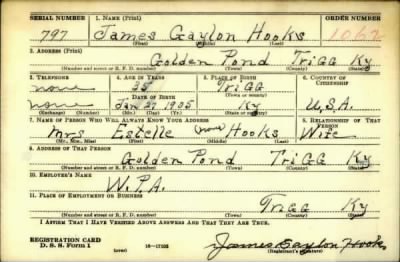 SERIAL NUMBER 1. NAME (Print) ORDER NUMBER
797 James Gaylon Hooks 1062
(First) (Middle) (Last)
2. ADDRESS (Print)
Golden Pond Trigg Ky
(Number and street or R. F. D. number) (Town) (County) (State)
3. TELEPHONE 4. AGE IN YEARS 5. PLACE OF BIRTH 6. COUNTRY OF CITIZENSHIP
none 35 Trigg
(Town or county)
DATE OF BIRTH
none Jan 27 1905 Ky U.S.A.
(Exchange) (Number) (Mo.) (Day) (Yr.) (State or country)
7. NAME OF PERSON WHO WILL ALWAYS KNOW YOUR ADDRESS 8. RELATIONSHIP OF THAT PERSON
Mrs Estelle (none) Hooks Wife
(Mr., Mrs., Miss) (First) (Middle) (Last)
9. ADDRESS OF THAT PERSON
Golden Pond Trigg Ky
(Number and street or R. F. D. number) (Town) (County) (State)
10. EMPLOYER'S NAME
W.P.A.
11. PLACE OF EMPLOYMENT OR BUSINESS
Trigg Ky
(Number and street or R. F. D. number) (Town) (County) (State)
I AFFIRM THAT I HAVE VERIFIED ABOVE ANSWERS AND THAT THEY ARE TRUE.
REGISTRATION CARD
D. S. S. Form 1 (over) 16—17105 James Gaylon Hooks
(Registrant's signature)